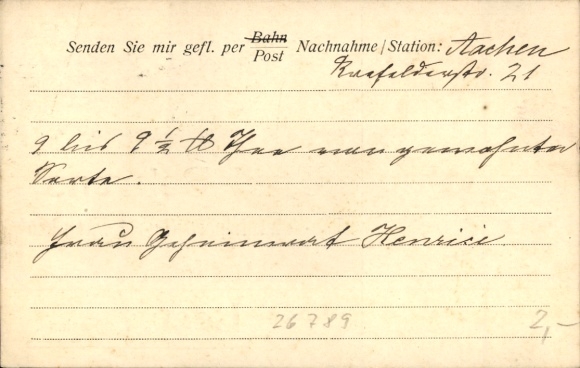 Senden Sie mir gefl. per Bahn/Post Nachnahme/Station: Aachen
Krefelderstr. 21
9 bis 9 1/2 ℔ Thee von gewohnter
Sorte.
Frau Geheimrat Henrici
26789 2,-